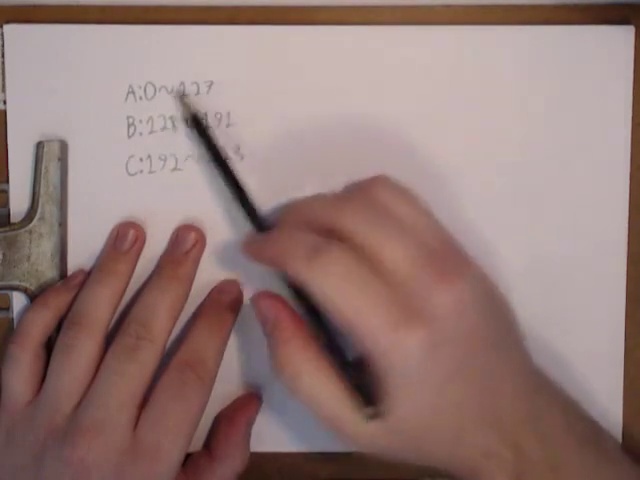 A:0~127
B:128 191
C:192~